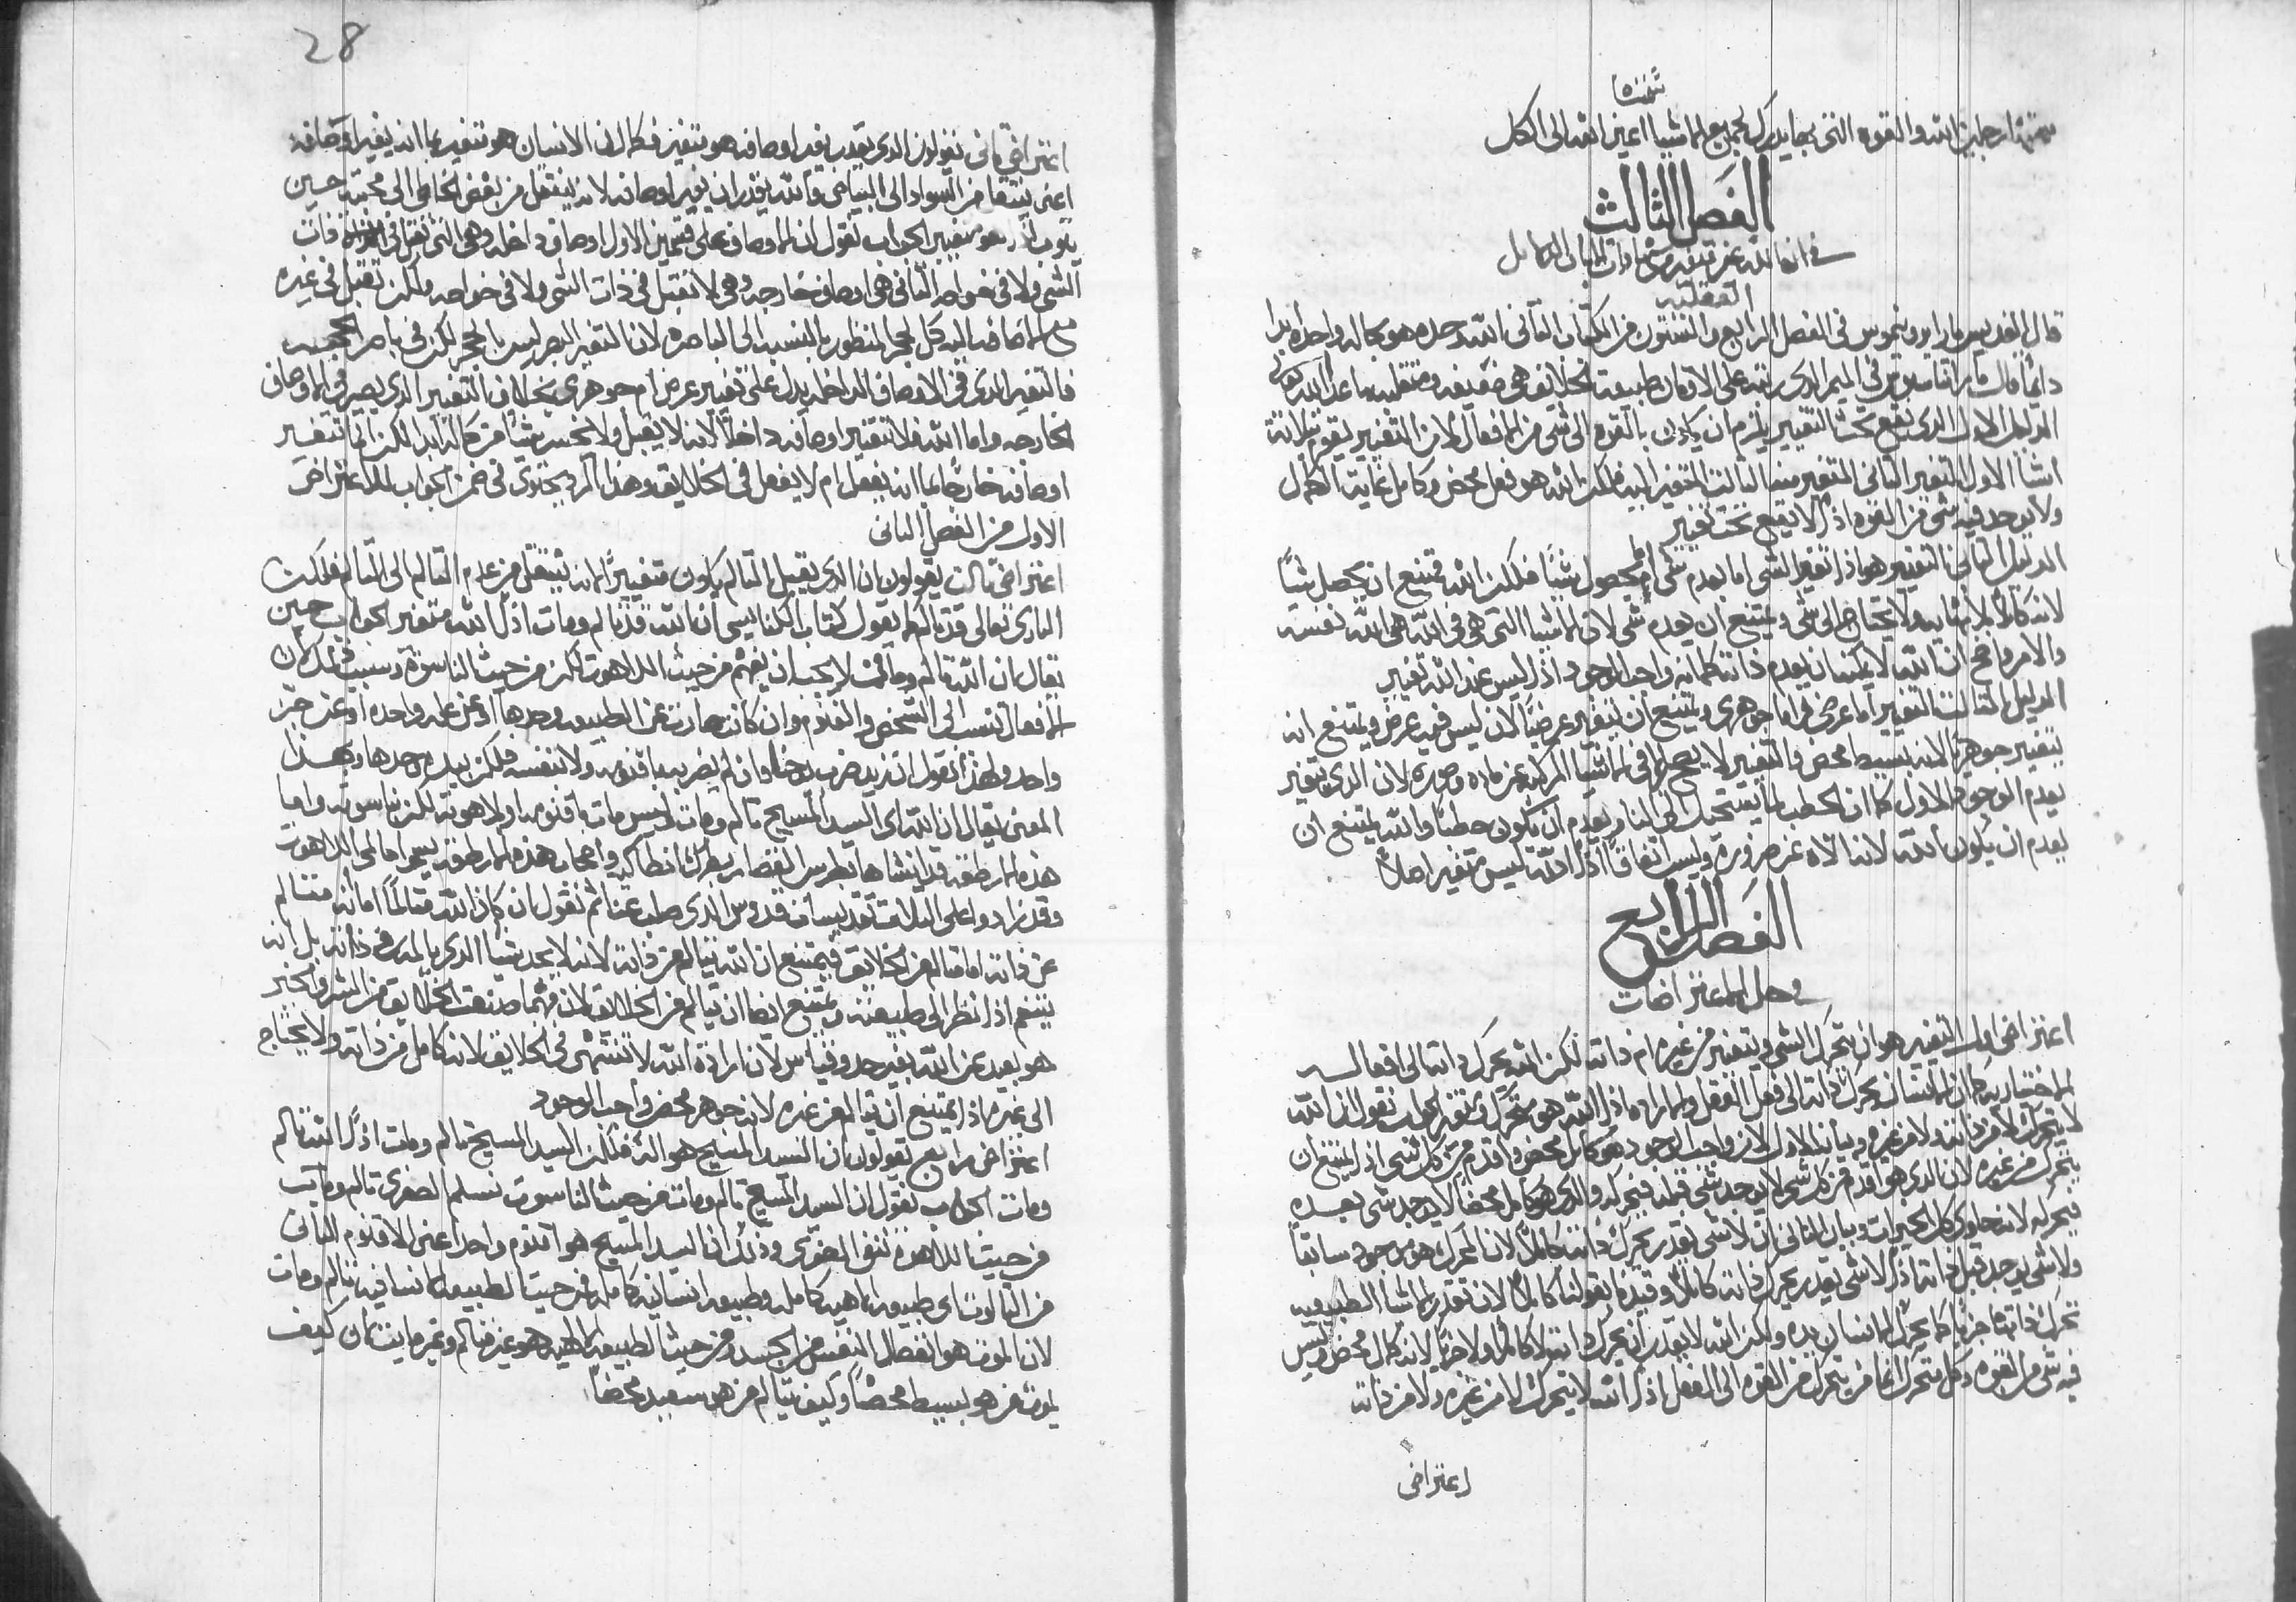 والقوه التي بها يدرك جميع الاشيا اعني افعال الكل
الفصل الثالث
في ان الله غير متغير
العقليه
قال القديس ايرونيموس في الفصل الرابع والستون من الكتاب الثاني الله وحده هو بحاله واحده ابدا
دايمًا قال اثناسيوس في الميمر الذي على الاومان طبيعت الخلايق هي ضعيفه ومتقلبه ما عدا الله
الدليل الاول الذي يقع تحت التغيير يلزم ان يكون بالقوه الى شي من الافعال لان التغيير يقوم بثلاثة
اشيا الاول التغير الثاني المتغير منه الثالث المتغير اليه فلكن الله هو فعل محض وكامل بغاية الكمال
ولا يوجد فيه شي من القوه اذًا لا يقع تحت تغيير
الدليل الثاني التغيير هو اذا تغير الشي اما بعدم شي ام بحصول شيًا فلكن الله يمتنع ان يحصل شيًا
لانه كاملًا بلا نهايه ولا يحتاج الى شي ويمتنع ان يعدم شي لان الاشيا التي هي في الله هي الله نفسه
والامر واضح ان الله لا يمكنه ان يعدم ذاته كما انه واجب الوجود اذًا ليس عند الله تغيير
الدليل الثالث التغيير اما عرضي واما جوهري ويمتنع ان يتغير عرضيًا لان ليس فيه عرض ويمتنع انه
يتغير جوهريًا لانه بسيط محض والتغيير لا يصح الا في الاشيا المركبه من ماده وصوره لان الذي يتغير
يعدم الوجود الاول كما ان الحطب لما يستحيل الى النار يعدم ان يكون حطبًا والله يمتنع ان
يعدم ان يكون الله لانه الاه عن ضرورة وليس اتفاقًا اذًا الله ليس متغير اصلًا
الفصل الرابع
في حل الاعتراضات
اعتراض اول التغيير هو ان يتحرك الشي ويتغير من غيره ام ذاته لكن الله يحرك ذاته الى افعاله
الاختياريه كما ان الانسان يحرك ذاته الى فعل العقل والاراده اذًا الله هو متحرك ومتغير الجواب نقول ان الله
لا يتحرك لا من ذاته ولا من غيره وبيان الاول لان واجب الوجود هو كامل محض واقدم من كل شي اذًا يمتنع ان
يتحرك من غيره لان الذي هو اقدم من كل شي لا يوجد شي قبله فيحركه والذي هو كامل محضًا لا يوجد شي بعده
فيحركه لانه حاوي كل الخيرات وبيان الثاني ان لا شي يقدر يحرك ذاته كاملًا لان المحرك هو موجود سابقًا
ولا شي يوجد قبل ذاته اذًا لا شي يقدر يحرك ذاته كاملًا وقيدنا بقولنا كاملًا لان تقدر الاشيا الطبيعيه
تحرك ذاتها جزيًا كما يحرك الانسان يده ولكن الله لا يقدر ان يحرك ذاته لا كاملًا ولا جزيًا لانه كامل محض وليس
فيه شي من القوه وكل متحرك انما يتحرك من القوه الى الفعل اذًا الله لا يتحرك لا من غيره ولا من ذاته
اعتراض
28
اعتراض ثاني يقولون الذي يقدر يغير اوصافه هو متغير فكما ان الانسان هو متغير بما انه يغير اوصافه
اعني ينتقل من السواد الى البياض فالله يقدر ان يغير اوصافه لانه ينتقل من بغض الخاطي الى محبته حين
يتوب اذًا هو متغير الجواب نقول ان الاوصاف على قسمين الاول اوصاف داخله وهي التي تقبل في ذات
الشي ولا في خواصه الثاني هي اوصاف خارجه وهي لا تقبل في ذات الشي ولا في خواصه ولكن تقبل في غيره
مع الاضافه اليه كل الحجر المنظور بالنسبه الى الباصره لان التغير البصر ليس بالحجر لكن في باصر الحجر
فالتغير الذي في الاوصاف الداخله يدل على تغيير عرضي ام جوهري بخلاف التغيير الذي يصير في الاوصاف
الخارجه واما الله فلا تتغير اوصافه داخلًا لانه لا يقبل ولا يخسر شيًا من كماله ابدا لكن انما تتغير
اوصافه خارجًا بما انه يفعل ام لا يفعل في الخلايق وهذا الرد يحتوي في ضمن الجواب للاعتراض
الاول من الفصل الثاني
اعتراض ثالث يقولون ان الذي يقبل التالم يكون متغيرًا لانه ينتقل من عدم التالم الى التالم فلكن
الباري تعالى قد تالم كما يقول كتاب الكنايسي ان الله قد تالم ومات اذًا الله متغير الجواب حين
يقال ان الله تالم ومات لا يجب ان يفهم من حيث اللاهوت لكن من حيث الناسوت وسبب ذلك ان
الافعال تنسب الى الشخص والقنوم وان كانت صارت عن الطبيعه وحدها او عن علم واحده او عن جز
واحد ولهذا نقول ان زيد ضرب يوحنا وان لم يضربه باقنومه ولا بنفسه فلكن بيده وحدها وبهذا
المعنى يقال ان الله اي السيد المسيح تالم ومات وليس مات باقنومه ولا لاهوته لكن بناسوته واما
هذه الارطقه قد انشاها بطرس القصار بطرك انطاكيه واصحاب هذه الارطقه يسموا مالمي اللاهوت
وقد زادوا على الثلاث تقديسات قدوس الذي صلب عنا ثم نقول ان كان الله متالمًا اما انه متالم
من ذاته اما متالم من الخلايق فيمتنع ان الله يتالم من ذاته لانه لا يجد شيًا الذي يالمه في ذاته بل انه
يتنعم اذا نظر الى طبيعته ويمتنع ايضا ان يتالم من الخلايق لان مهما صنعت الخلايق من الشر والخير
هو بعيد عن الله بغير حد وقياس لان ارادة الله لا تنتهي في الخلايق لانه كامل من ذاته ولا يحتاج
الى غيره اذًا يمتنع ان يتالم من غيره لانه جوهر محض واجب الوجود
اعتراض رابع يقولون ان السيد المسيح هو اله فلكن السيد المسيح تالم ومات اذًا الله تالم
ومات الجواب نقول ان السيد المسيح تالم ومات من حيث الناسوت نسلم الصغرى تالم ومات
من حيث اللاهوت ننفي الصغرى وذلك ان السيد المسيح هو اقنوم واحد اعني الاقنوم الثاني
من الثالوث اي طبيعه الاهيه كامله وطبيعه انسانيه كامله فمن حيث الطبيعه الانسانيه تالم ومات
لان الموت هو انفصال النفس من الجسد ومن حيث الطبيعه الالهيه هو غير متالم وغير مايت لان كيف
يموت من هو بسيط محضًا وكيف يتالم من هو سعيد محضًا